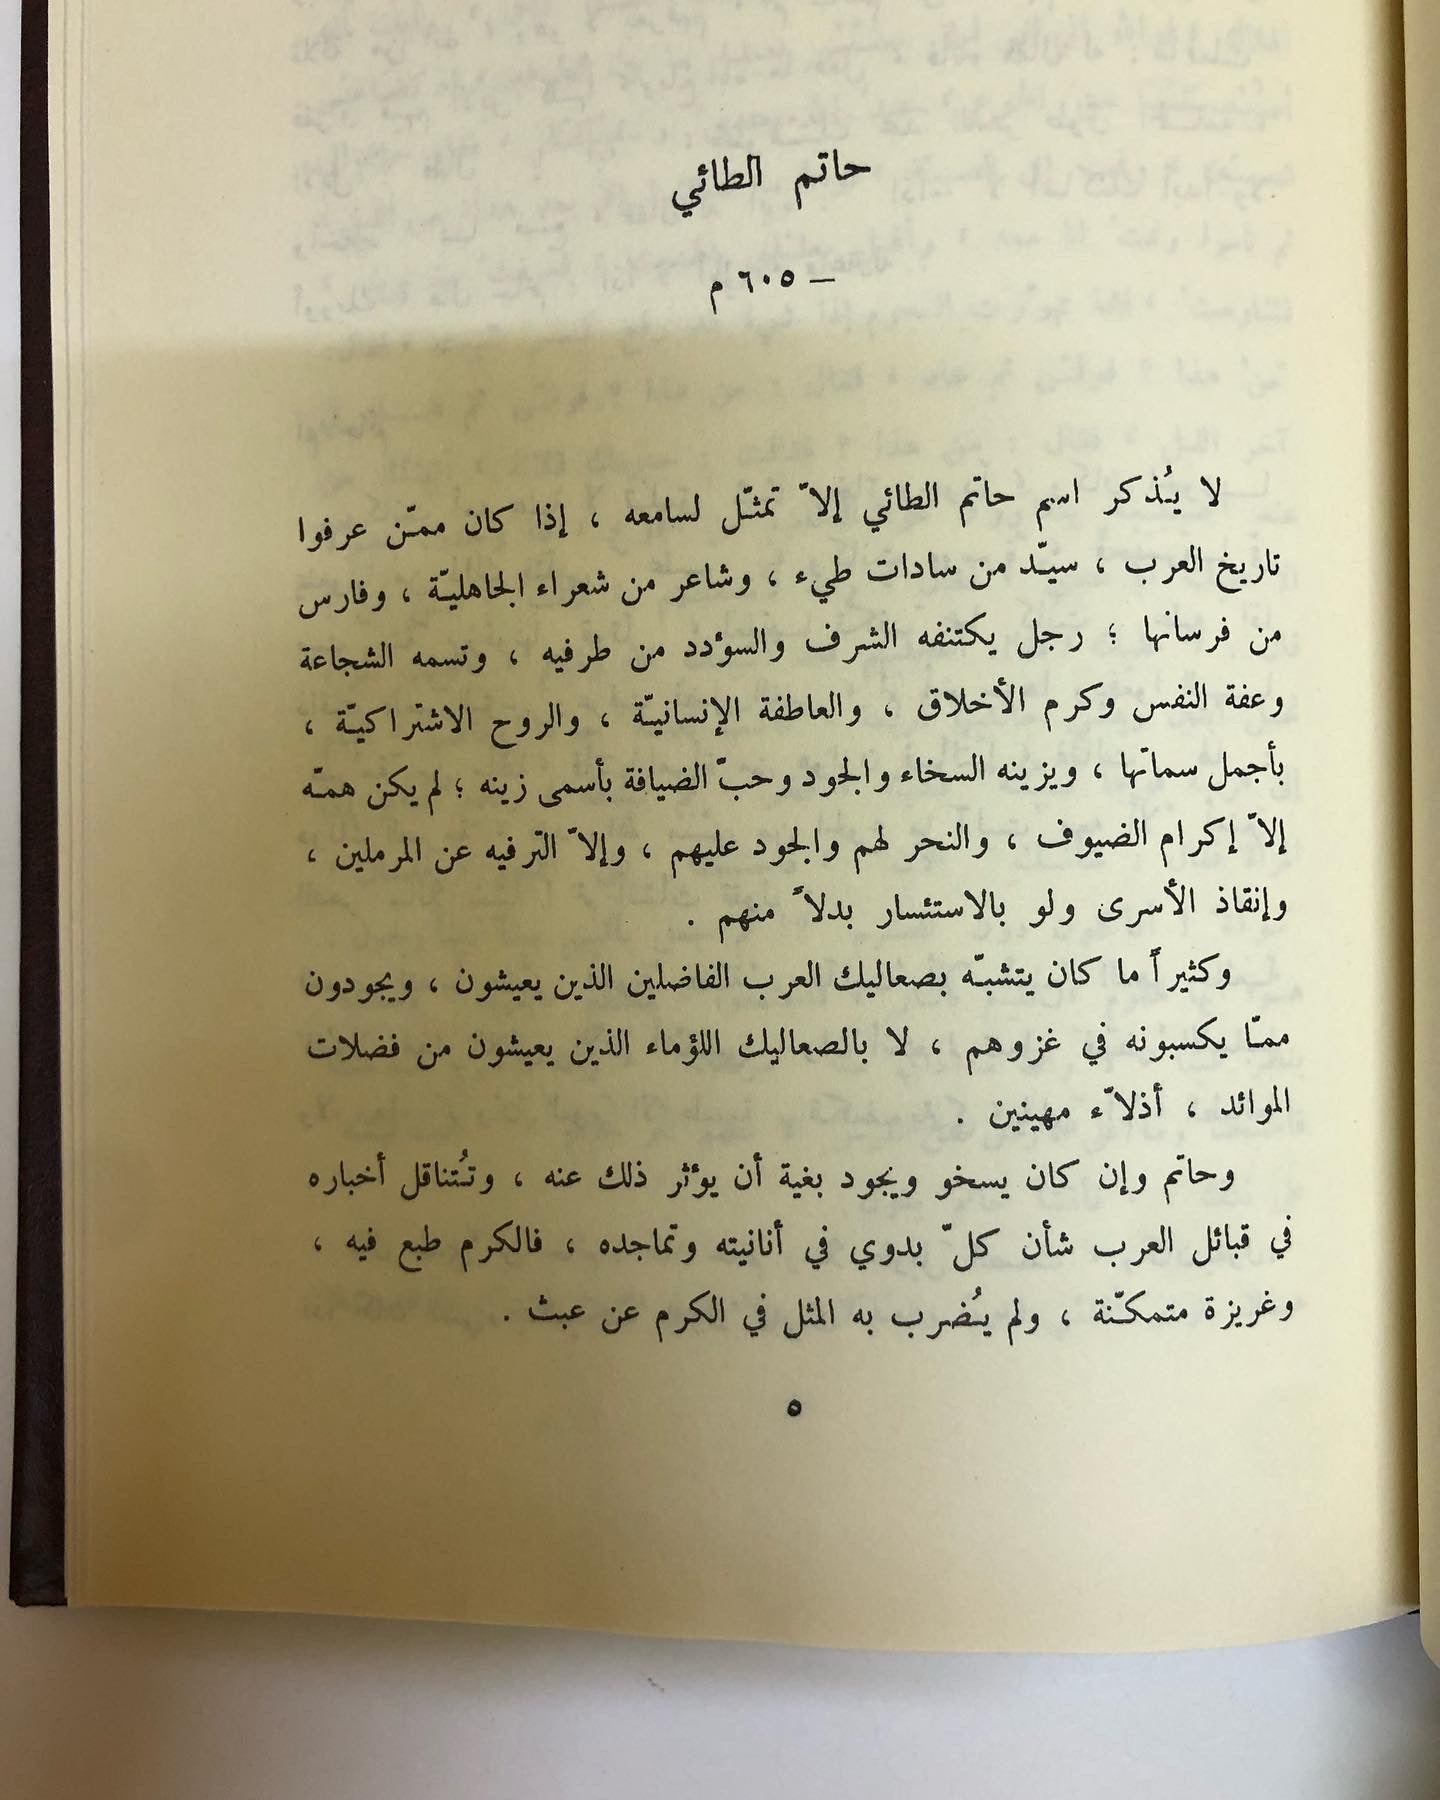 حاتم الطائي
– ٦٠٥ م
لا يُذكر اسم حاتم الطائي إلاّ تمثّل لسامعه ، إذا كان ممّن عرفوا
تاريخ العرب ، سيّد من سادات طيء ، وشاعر من شعراء الجاهليّة ، وفارس
من فرسانها ؛ رجل يكتنفه الشرف والسؤدد من طرفيه ، وتسمه الشجاعة
وعفة النفس وكرم الأخلاق ، والعاطفة الإنسانيّة ، والروح الاشتراكيّة ،
بأجمل سماتها ، ويزينه السخاء والجود وحبّ الضيافة بأسمى زينه ؛ لم يكن همّه
إلاّ إكرام الضيوف ، والنحر لهم والجود عليهم ، وإلاّ الترفيه عن المرملين ،
وإنقاذ الأسرى ولو بالاستئسار بدلاً منهم .
وكثيراً ما كان يتشبّه بصعاليك العرب الفاضلين الذين يعيشون ، ويجودون
ممّا يكسبونه في غزوهم ، لا بالصعاليك اللؤماء الذين يعيشون من فضلات
الموائد ، أذلاّء مهينين .
وحاتم وإن كان يسخو ويجود بغية أن يؤثر ذلك عنه ، وتُتناقل أخباره
في قبائل العرب شأن كلّ بدوي في أنانيته وتماجده ، فالكرم طبع فيه ،
وغريزة متمكّنة ، ولم يُضرب به المثل في الكرم عن عبث .
٥